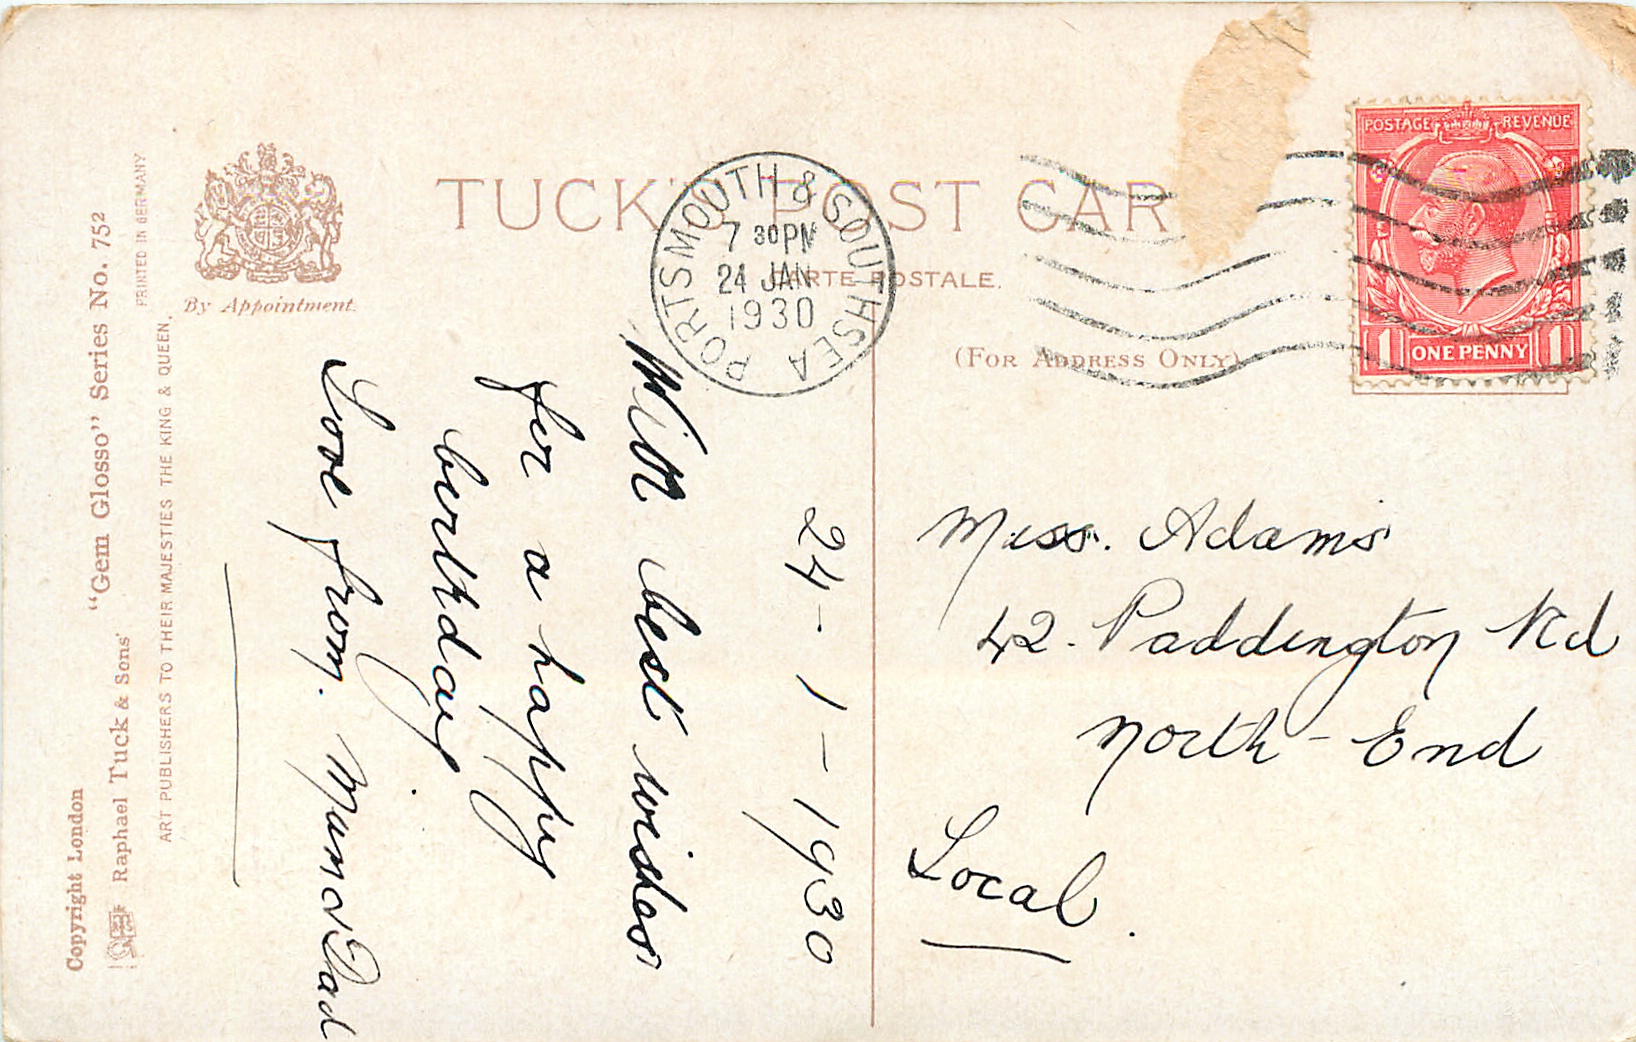 TUCK'S POST CAR
CARTE POSTALE.
(FOR ADDRESS ONLY)
By Appointment.
PORTSMOUTH & SOUTHSEA
7 30 PM
24 JAN
1930
POSTAGE REVENUE
1 ONE PENNY 1
24-1-1930
With best wishes
for a happy
birthday
Love from. Mum & Dad
Miss. Adams
42. Paddington Rd
North-End
Local.
PRINTED IN GERMANY
ART PUBLISHERS TO THEIR MAJESTIES THE KING & QUEEN.
Raphael Tuck & Sons' "Gem Glosso" Series No. 752
Copyright London